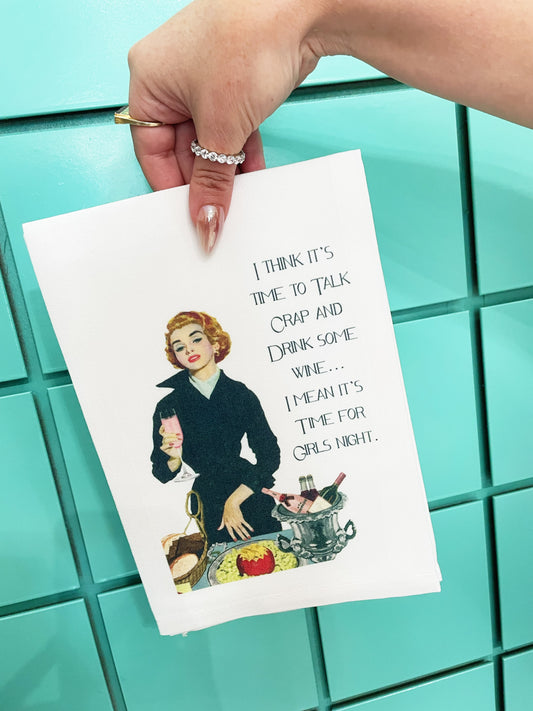 I THINK IT'S
TIME TO TALK
CRAP AND
DRINK SOME
WINE...
I MEAN IT'S
TIME FOR
GIRLS NIGHT.